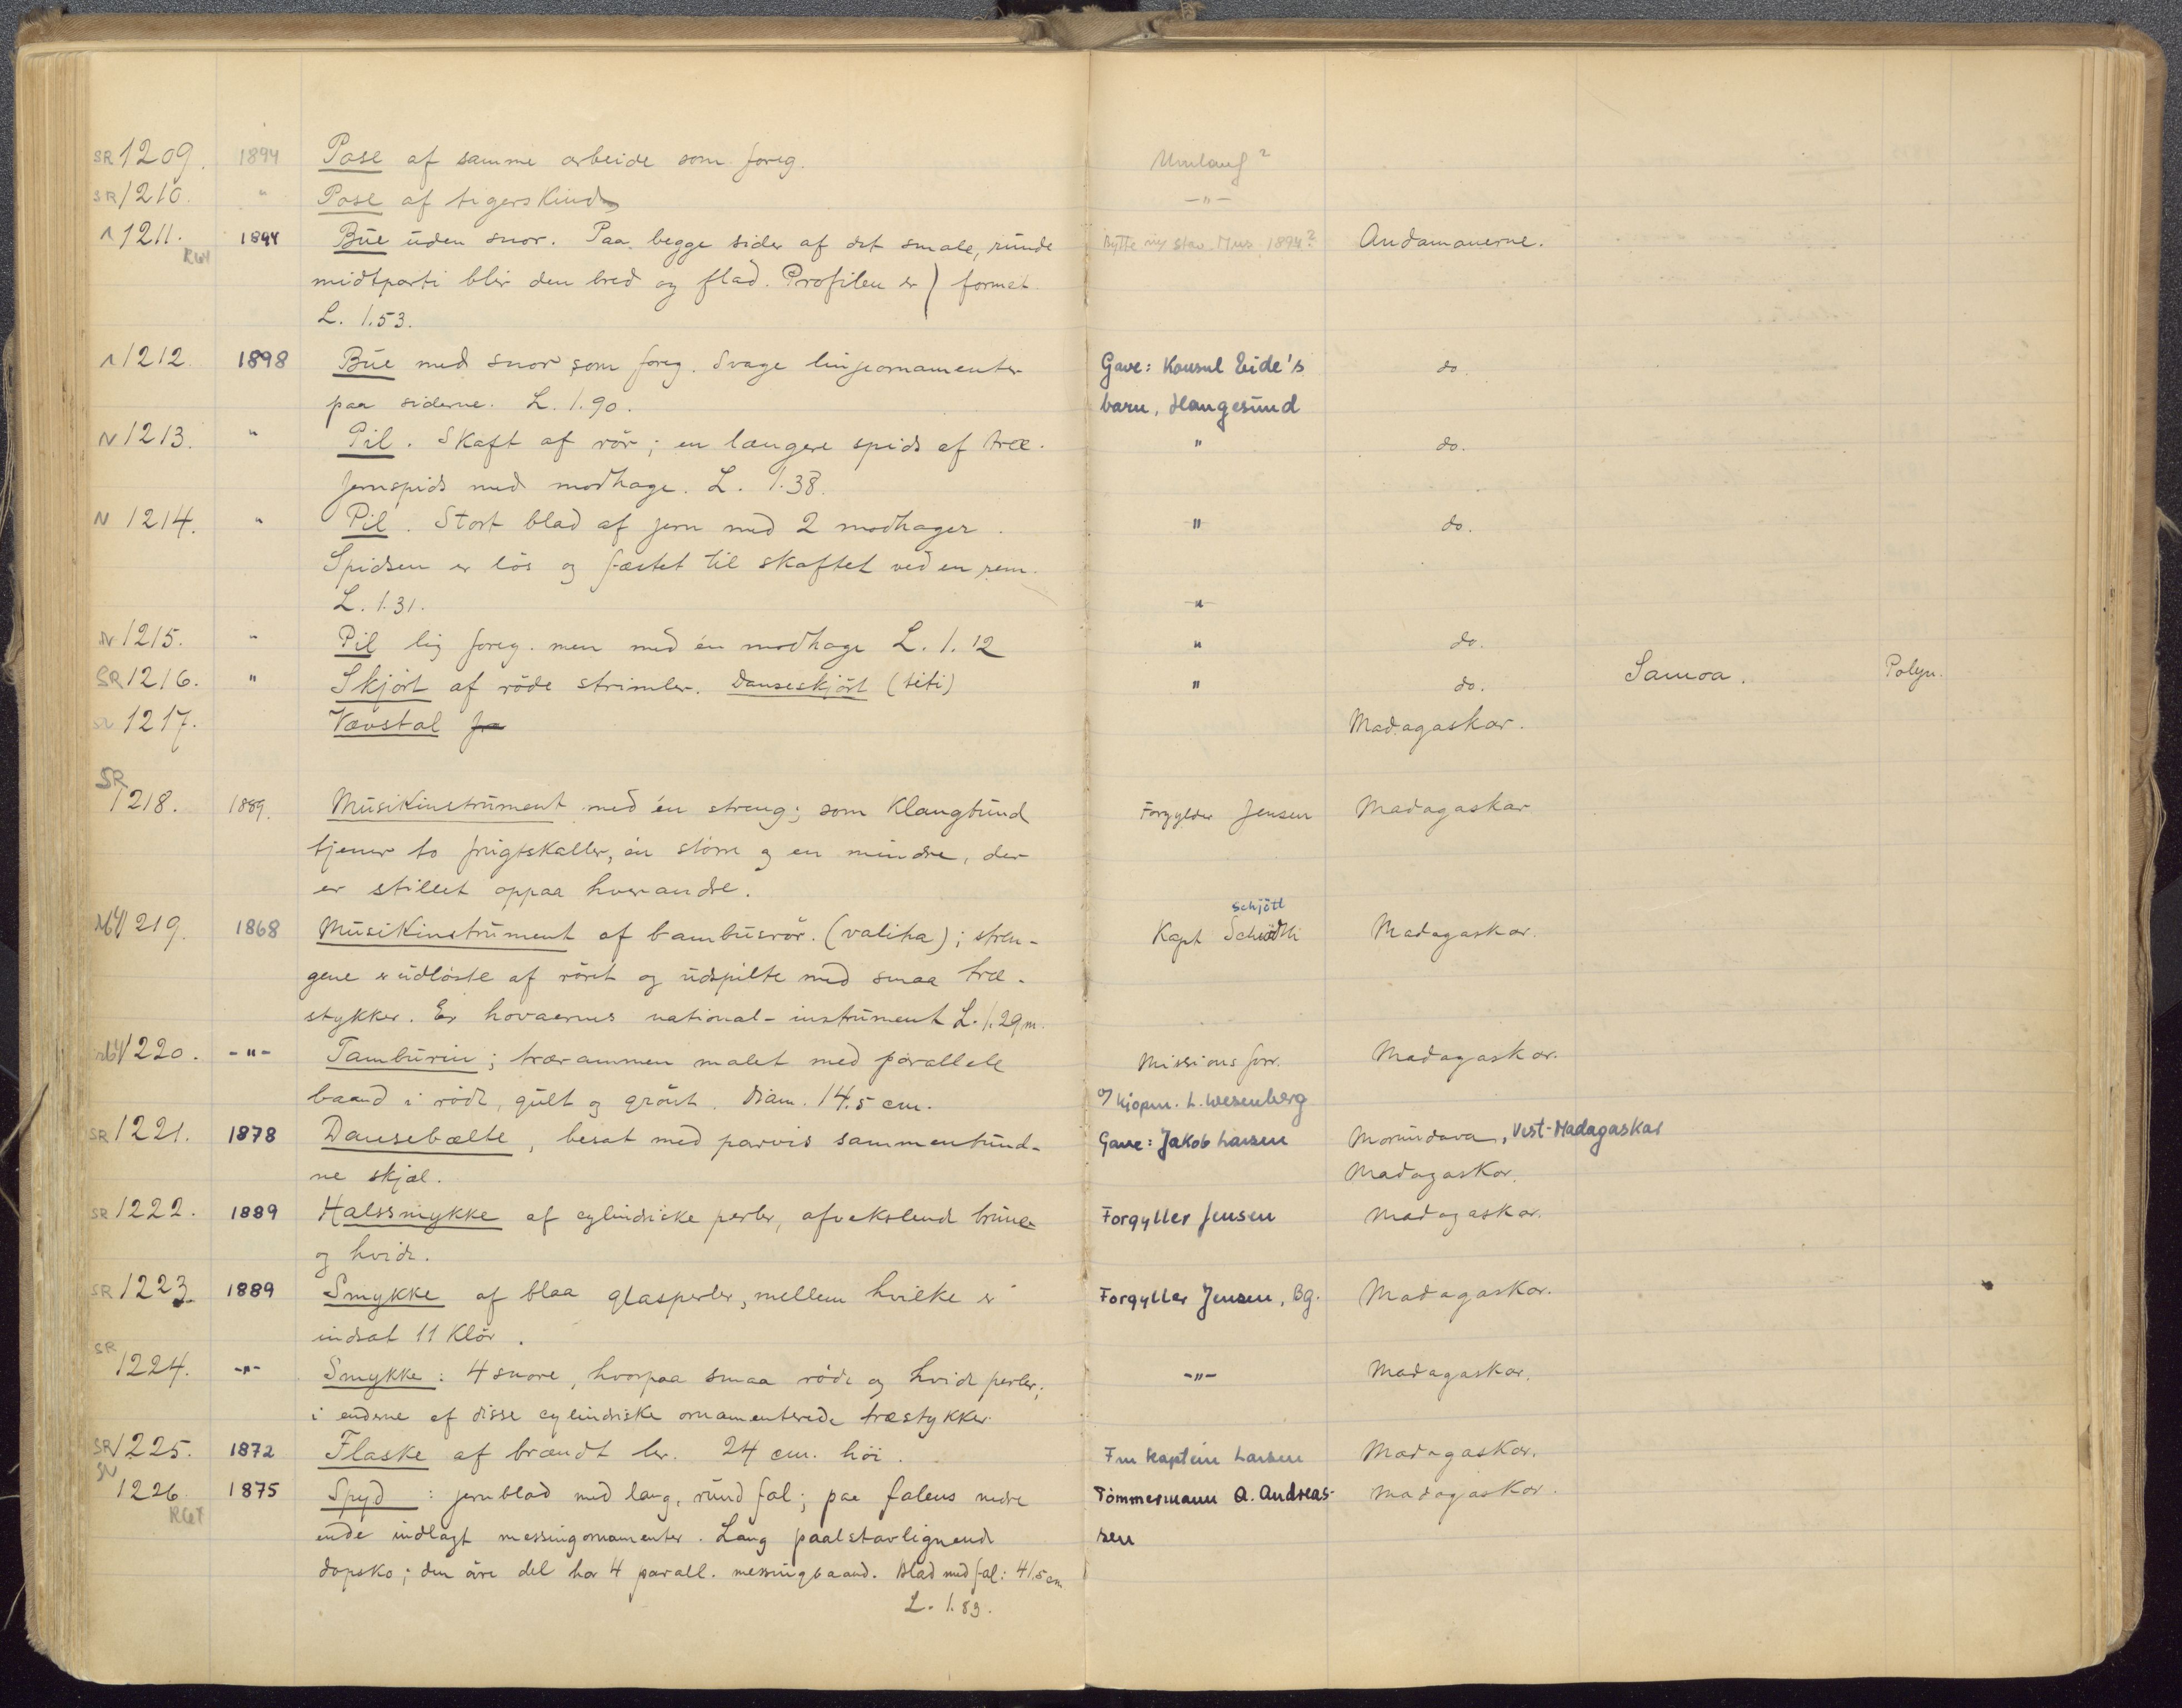 SR 1209. 1894 Pose af samme arbeide som foreg. Umlauf ?
SR 1210. " Pose af tigerskind -"-
1211. 1894 Bue uden snor. Paa begge sider af det smale, runde Bytte m/ Stav. Mus. 1894? Andamanerne.
midtparti blir den bred og flad. Profilen er ) formet.
L. 1.53.
1212. 1898 Bue med snor som foreg. Svage linjeornamenter Gave: Konsul Eide's do.
paa siderne. L. 1.90. barn, Haugesund
N 1213. " Pil. Skaft af rör; en længere spids af træ. " do.
Jernspids med modhage. L. 1.38.
N 1214. " Pil. Stort blad af jern med 2 modhager. " do.
Spidsen er lös og fæstet til skaftet ved en rem.
L. 1.31. "
N 1215. " Pil lig foreg. men med én modhage L. 1.12 " do.
SR 1216. " Skjört af röde strimler. Danseskjört (titi) " do. Samoa. Polyn.
1217. Vævstol Madagaskar.
SR 1218. 1889. Musikinstrument med én streng; som klangbund Forgylder Jensen Madagaskar
tjener to frugtskaller, én större og en mindre, der
er stillet oppaa hverandre.
Schjött
1219. 1868 Musikinstrument af bambusrör. (valiha); stren- Kapt Madagaskar.
gene er udlöste af röret og udspilte med smaa træ-
stykker. Er hovaernes national-instrument L. 1.29 m.
1220. -"- Tamburin; trærammen malet med parallele Missions forr. Madagaskar.
baand i rödt, gult og grönt. Diam. 14.5 cm. v/ Kjöpm. L. Wesenberg
SR 1221. 1878 Dansebælte, besat med parvis sammenbund- Gave: Jakob Larsen Morundava, Vest-Madagaskar
ne skjæl. Madagaskar.
SR 1222. 1889 Halssmykke af cylindriske perler, afvekslende brune Forgyller Jensen Madagaskar.
og hvide.
SR 1223. 1889 Smykke af blaa glasperler, mellem hvilke er Forgyller Jensen, Bg. Madagaskar.
indsat 11 klör.
SR 1224. -"- Smykke: 4 snore, hvorpaa smaa röde og hvide perler; -"- Madagaskar.
i enderne af disse cylindriske ornamenterede træstykker.
SR 1225. 1872 Flaske af brændt ler. 24 cm. höi. Fru Kaptein Larsen Madagaskar.
1226. 1875 Spyd: jernblad med lang, rund fal; paa falens nedre Tömmermann A. Andreas- Madagaskar.
ende indlagt messingornamenter. Lang paalstavlignende sen
dopsko; den övre del har 4 parall. messingbaand. Blad med fal: 41.5 cm
L. 1.83.